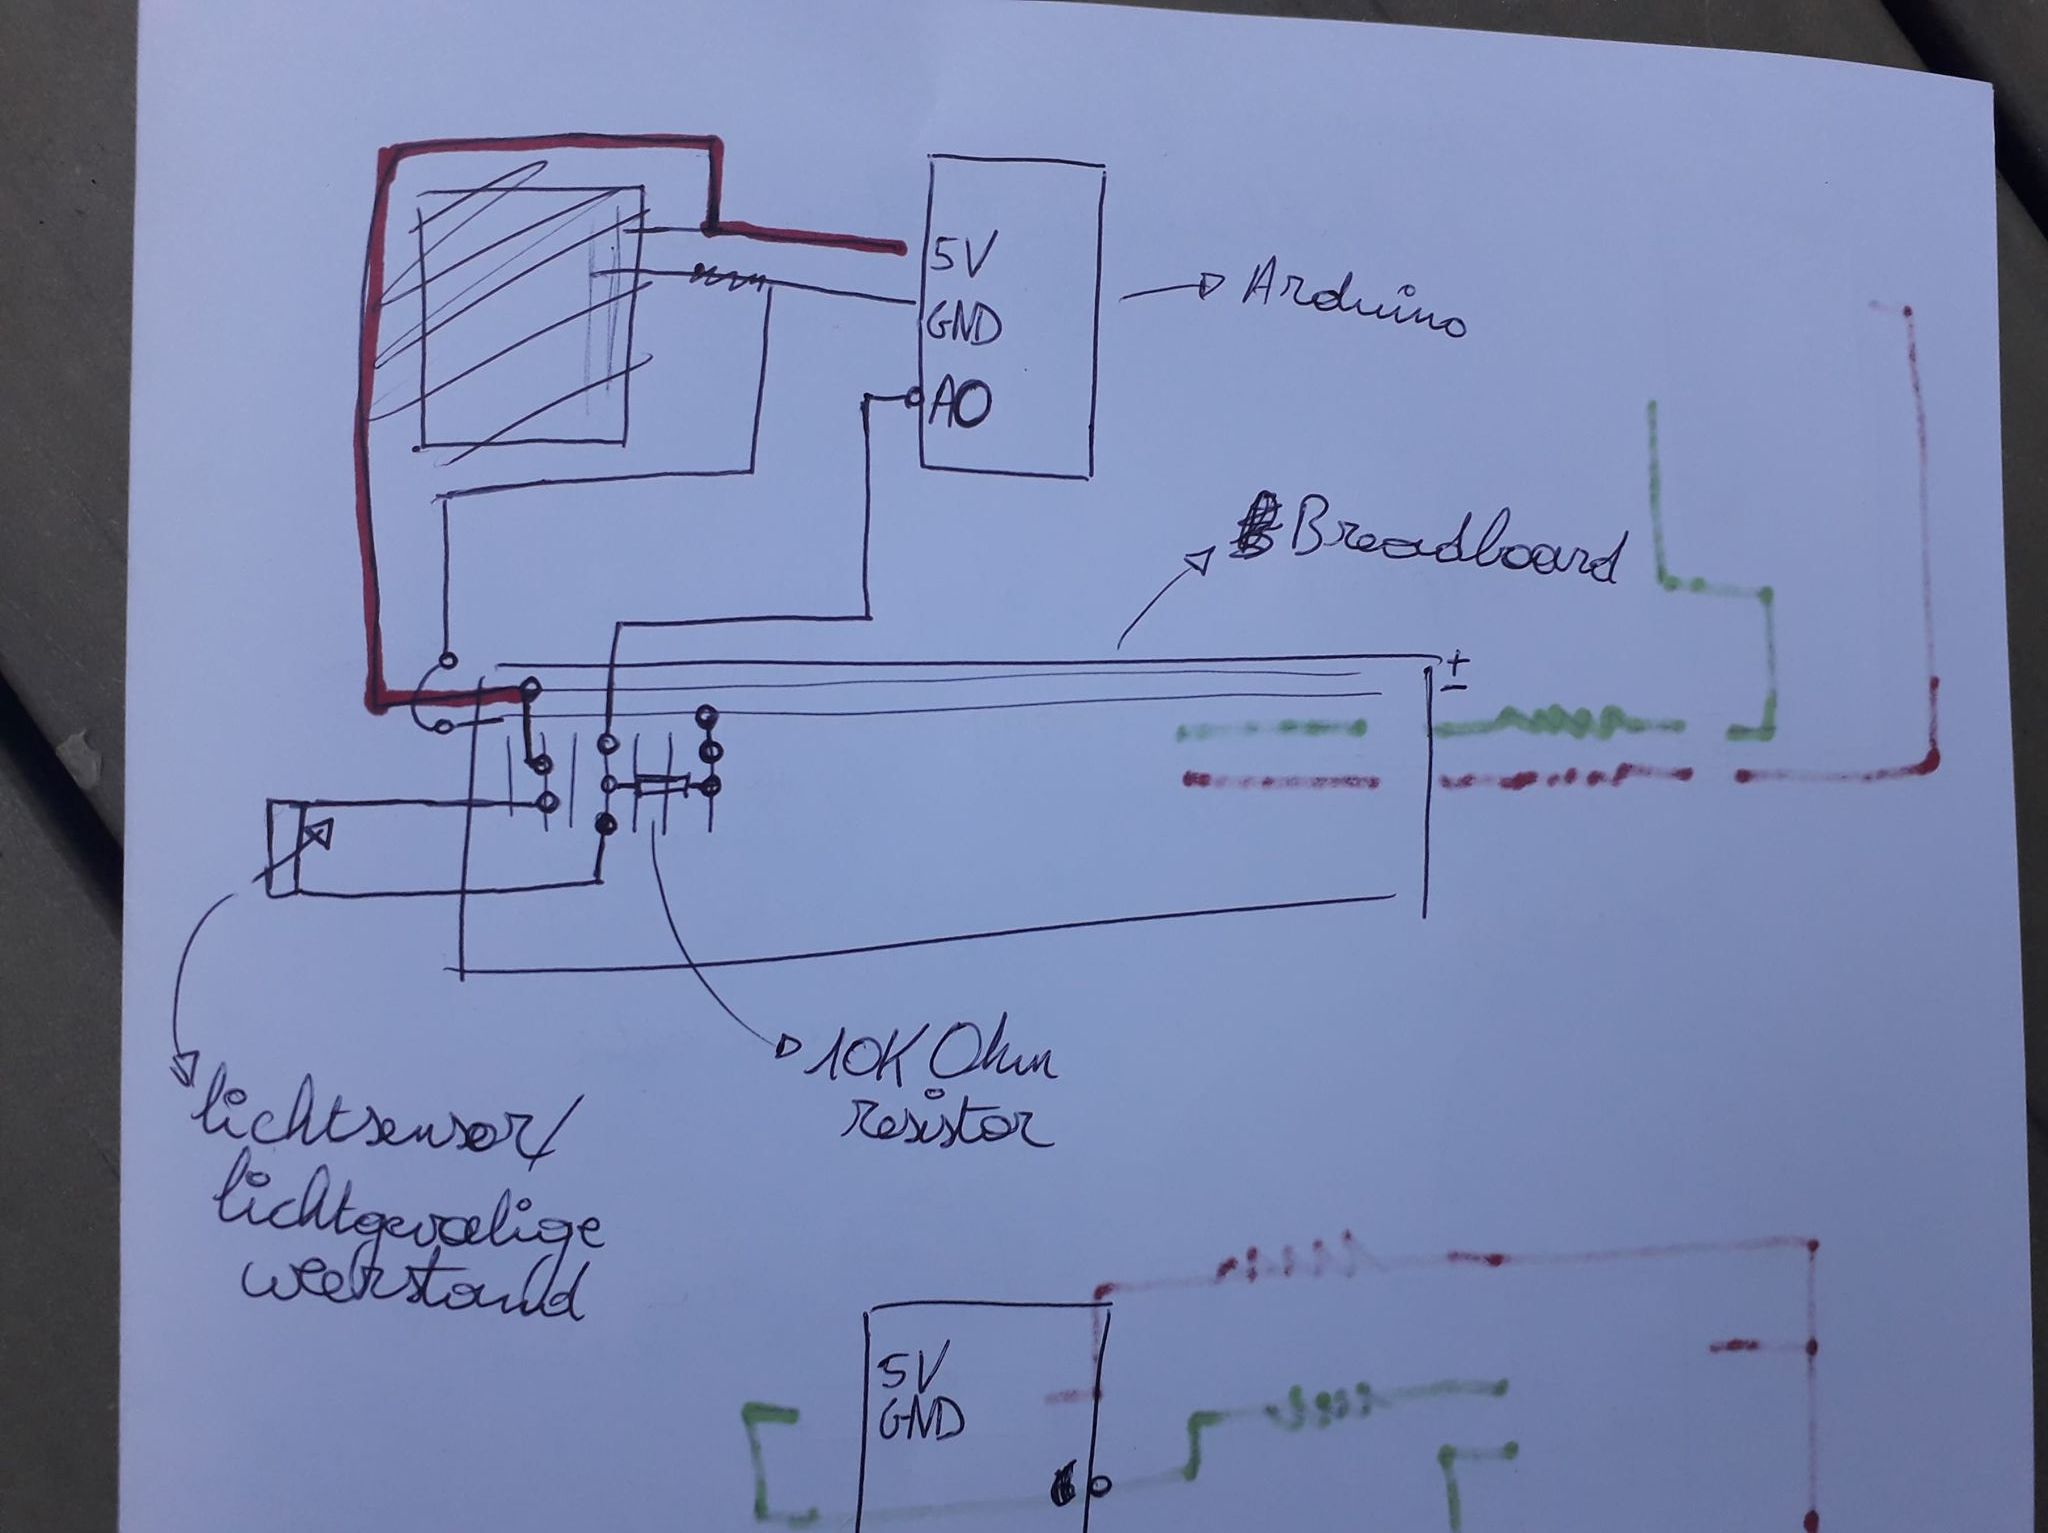 5V
GND
A0
Arduino
Breadboard
+
-
10K Ohm
resistor
lichtsensor/
lichtgevoelige
weerstand
5V
GND